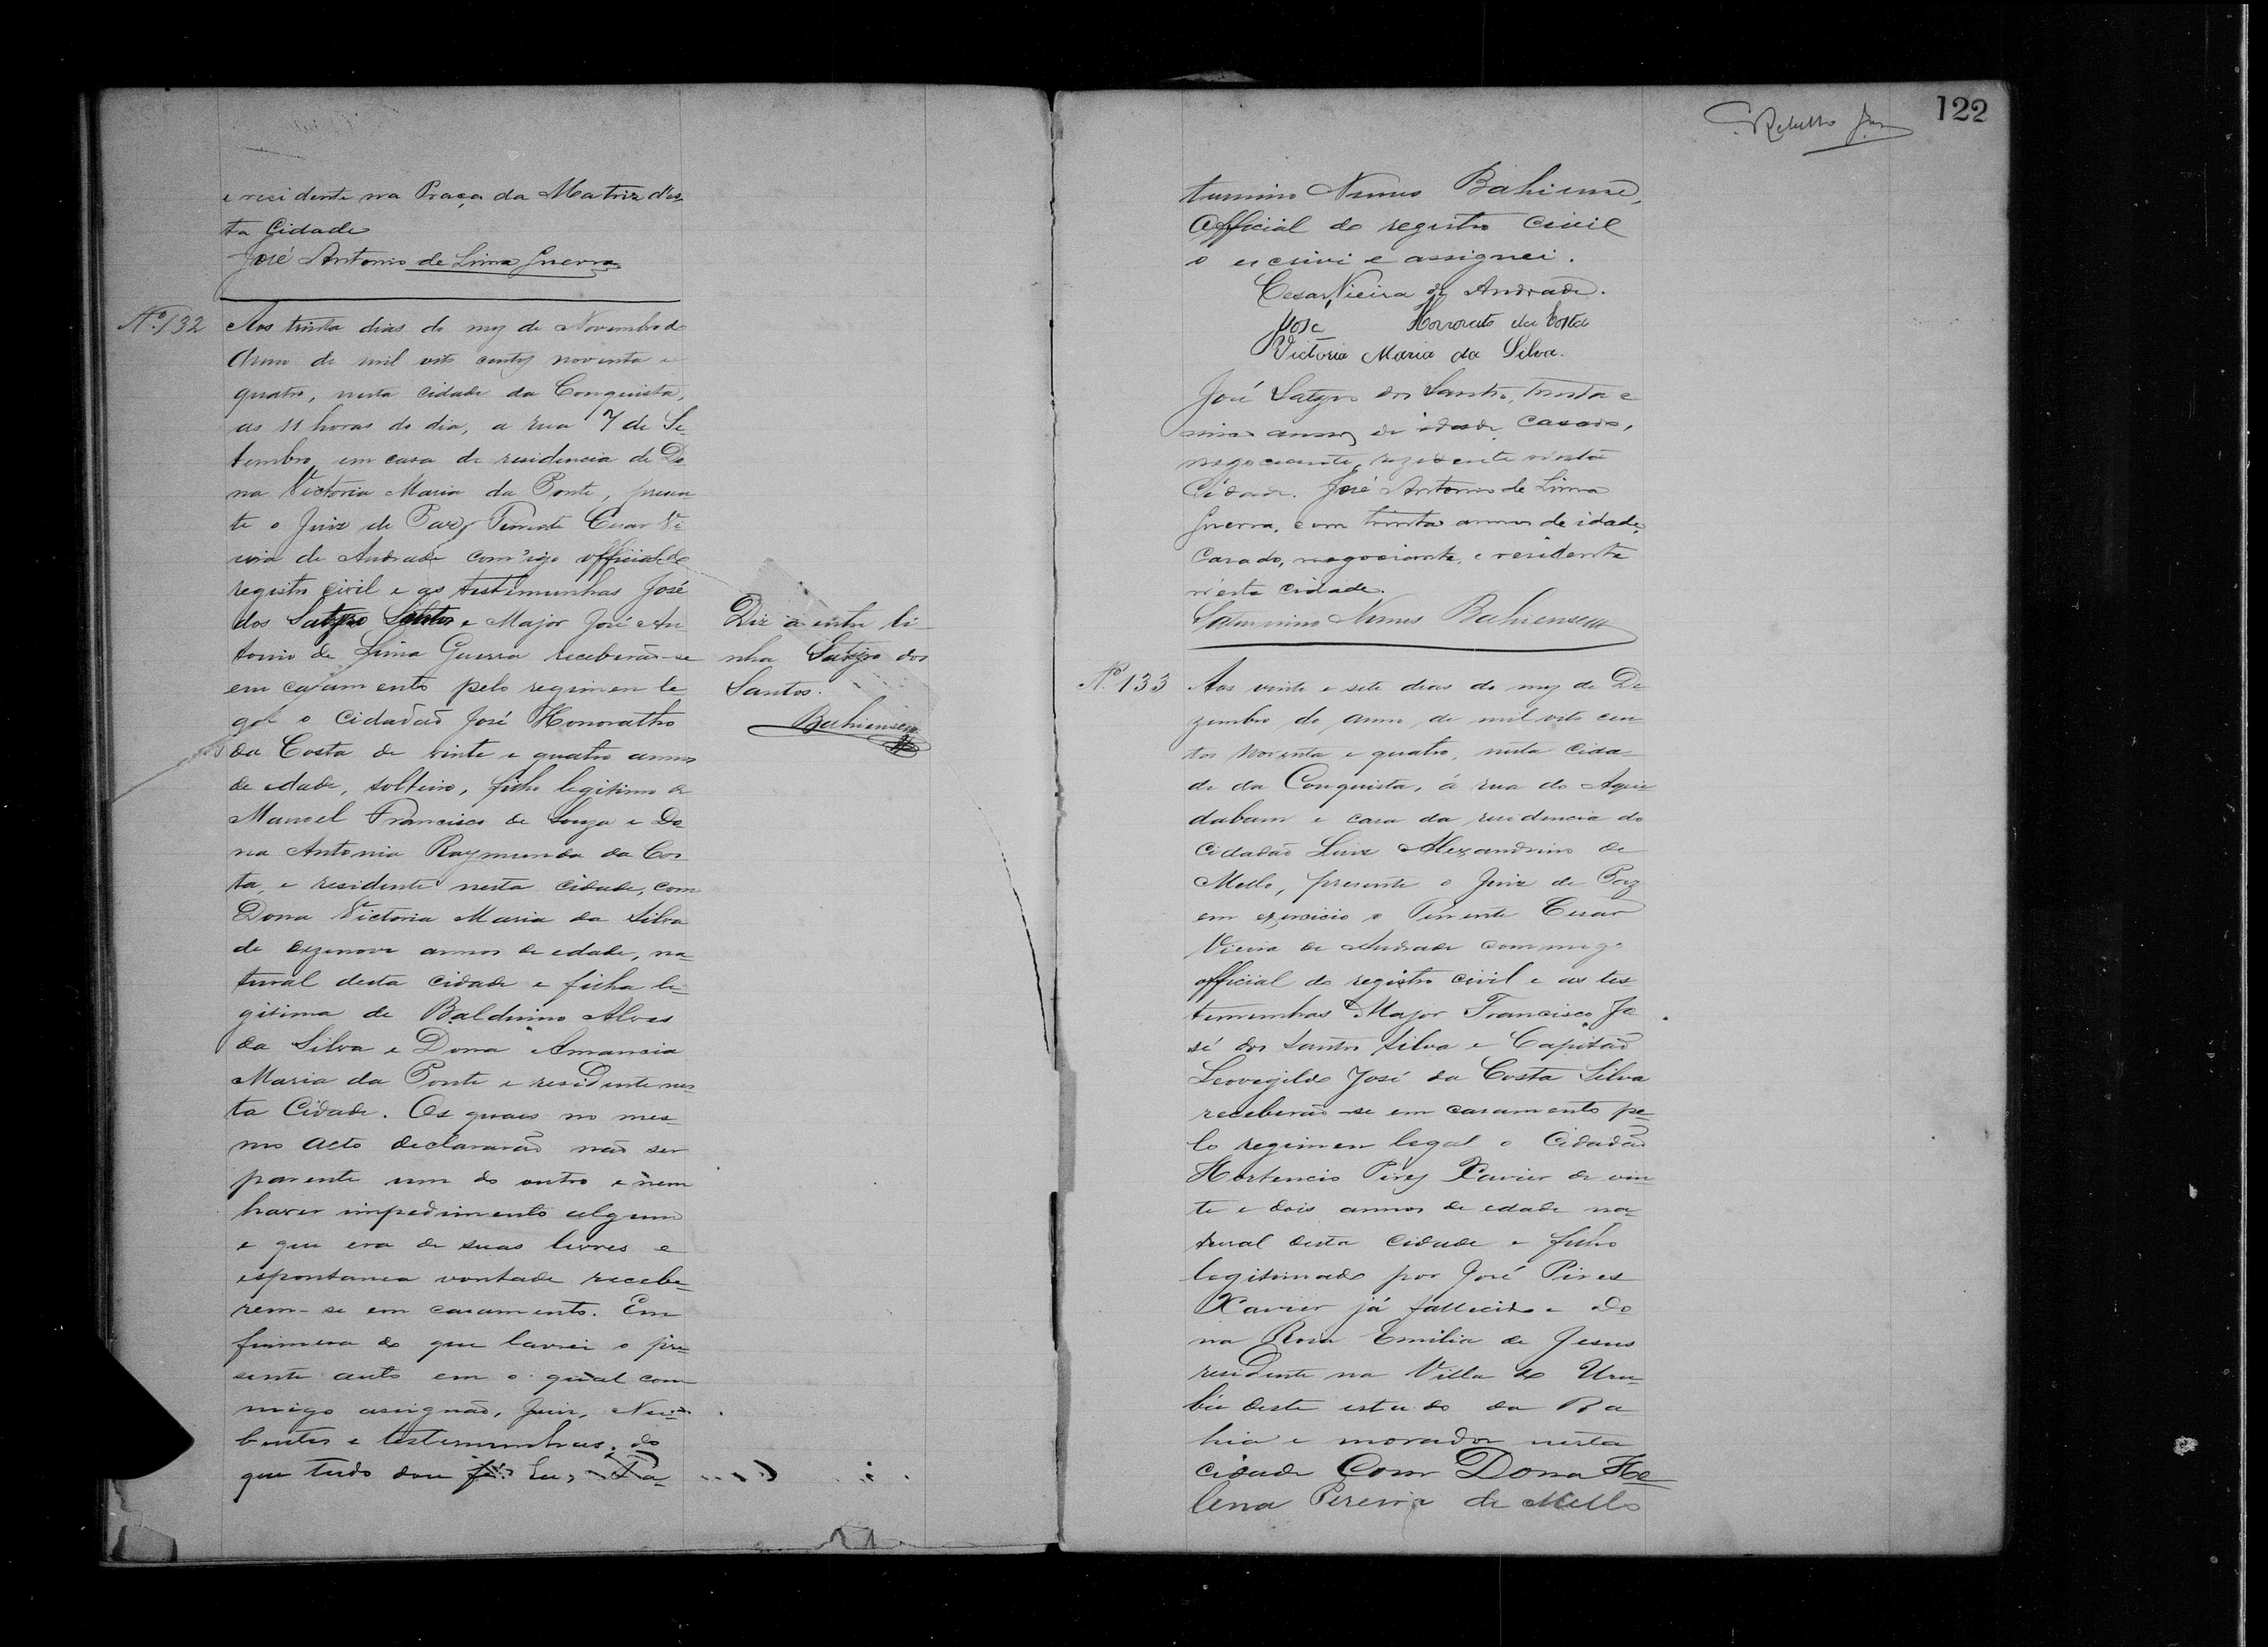 e residente na Praça da Matriz d'es-
ta Cidade
José Antonio de Lima Guerra
Nº 132
Aos trinta dias do mez de Novembro do
Anno de mil oito centos noventa e
quatro, nesta cidade da Conquista,
as 11 horas do dia, a rua 7 de Se-
tembro, em casa de residencia de Do
na Victoria Maria da Ponte, presen
te o Juiz de Paz, Tenente Cesar Vi
eira de Andrade com'igo official do
registro civil e as testimunhas José
dos Satyro Santos e Major José An
tonio de Lima Guerra receberão-se
em casamento pelo regimen le
gal o Cidadão José Honoratho
da Costa de vinte e quatro annos
de edade, solteiro, filho legitimo de
Manoel Francisco de Souza e Do
na Antonia Raymunda da Cos-
ta, e residente nesta cidade, com
Dona Victoria Maria da Silva
de dezenove annos de edade, na-
tural desta cidade e filha le-
gitima de Balduino Alves
da Silva e Dona Amancia
Maria da Ponte e residente nes
ta Cidade. Os quaes no mes-
mo acto declararão não ser
parente um do outro e nem
haver impedimento algum
e que era de suas livres e
espontanea vontade recebe-
rem-se em casamento. Em
firmesa do que lavrei o pre-
sente auto em o qual com
migo assignão, Juiz, Nu-
bentes e testemunhas. do
que tudo dou fé. Eu, Sa-
Diz a entre li-
nha Satyro dos
Santos.
Bahiense
122
turnino Nunes Bahiense,
Official do registro civil
o escrivi e assignei.
Cesar Vieira de Andrade.
José Honorato da Costa
Victoria Maria da Silva.
José Satyro dos Santos, trinta e
cinco annos de idade, casado,
negociante, rezidente n'esta
Cidade. José Antonio de Lima
Guerra, com trinta annos de idade,
Casado, negociante, e residente
n'esta cidade.
Saturnino Nunes Bahiense
Nº 133
Aos vinte e sete dias do mez de De
zembro do anno de mil oito cen
tos noventa e quatro, nesta cida
de da Conquista, á rua do Aqui
daban e casa da residencia do
Cidadão Luiz Alexandrino de
Mello, presente o Juiz de Paz
em exercicio o Tenente Cesar
Vieira de Andrade commigo
official do registro civil e as tes
temunhas Major Francisco Jo
sé dos Santos Silva e Capitão
Leovegildo José da Costa Silva
receberão-se em casamento pe-
lo regimen legal o Cidadão
Hortencio Pires Xavier de vin
te e dois annos de edade na-
tural desta cidade e filho
legitimado por José Pires
Xavier já fallecido e Do
na Rosa Emilia de Jesus
residente na Villa do Uru-
bú deste estado da Ba
hia e morador nesta
cidade Com Dona He
lena Pereira de Mello